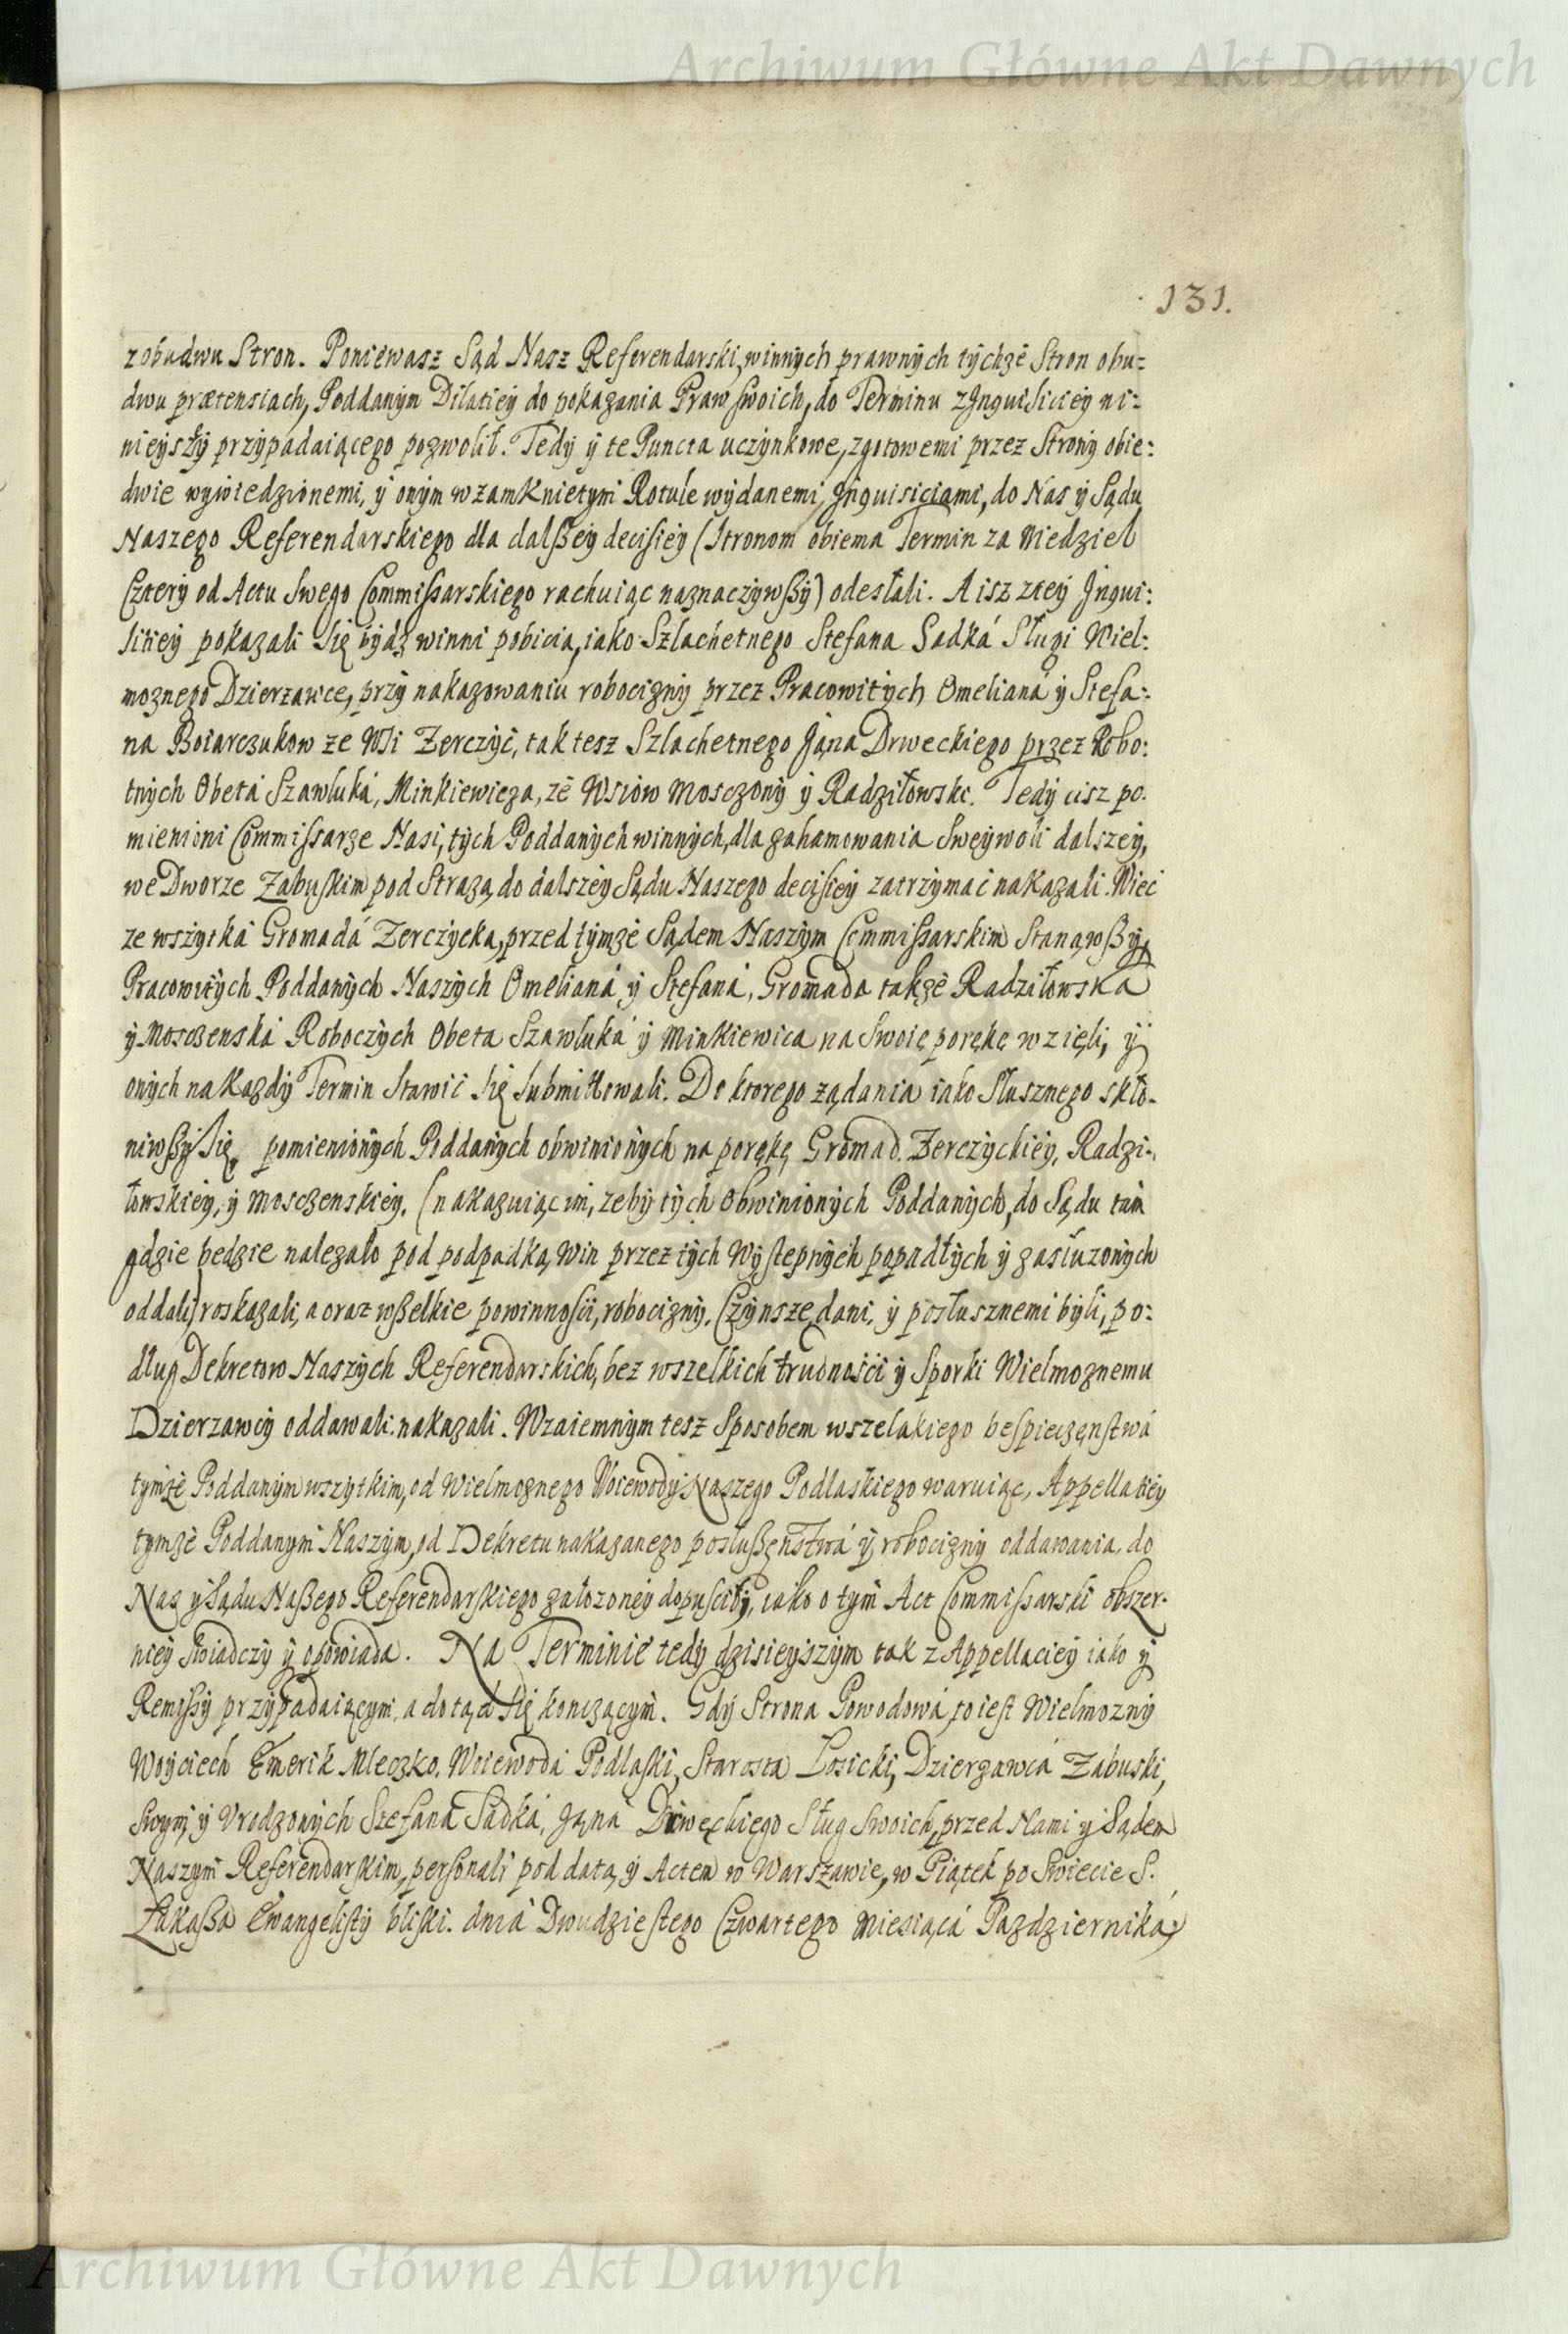 Archiwum Główne Akt Dawnych
131.
z obudwu Stron. Poniewasz Sąd Nasz Referendarski, winnych prawnych tychże Stron obu=
dwu prætensiach, Poddanym Dilatiey do pokazania Praw swoich, do Terminu z Jnquisiciey ni=
nieyszy przypadaiącego pozwolił. Tedy y te Puncta uczynkowe, zgotowemi przez Strony obie=
dwie wywiedzionemi, y onym w zamknietym Rotule wydanemi Jnquisiciami, do Nas y Sądu
Naszego Referendarskiego dla dalßey decisiey (Stronom obiema Termin za Niedziel
Cztery od Actu Swego Commissarskiego rachuiąc naznaczywßy) odesłali. A isz z tey Jnqui=
siciey pokazali się bydz winni pobicia, iako Szlachetnego Stefana Sadká Sługi Wiel=
moznego Dzierzawce, przy nakazowaniu robocizny przez Pracowitych Omelianá y Stefa=
na Boiarczukow ze Wsi Zerczyć, tak tesz Szlachetnego Jana Drweckiego przez Robo=
tnych Obetá Szawluká, Minkiewicza, ze Wsiow Mosczony y Radziłowskc. Tedy cisz po=
mienioni Commissarze Nasi, tych Poddanych winnych, dla zahamowania Sweywoli dalszey,
we Dworze Zabuskim pod Strażą, do dalszey Sądu Naszego decisiey zatrzymać nakazali. Wiec
ze wszytká Gromadá Zerczycka, przed tymże Sądem Naszym Commissarskim Stanąwßy,
Pracowitych Poddanych Naszych Omelianá y Stefaná, Gromada także Radziłowska
y Mosczenská Roboczych Obeta Szawluká y Minkiewica na Swoię porękę wzięli, y
onych na Kazdy Termin Stawić się submittowali. Do ktorego żądania iako Słusznego skło=
niwßy się, pomienionych Poddanych obwinionych na porękę Gromad. Zerczyckiey, Radzi=
łowskiey, y Mosczenskiey, (nakazuiąc im, zeby tych Obwinionych Poddanych, do Sądu tam
gdzie będzie nalezało pod podpadką, win przez tych Wystepnych popadłych y zasłuzonych
oddali) roskazali, a oraz wßelkie powinnosci, robocizny, Czynsze, dani, y posłusznemi byli, po=
dług Dekretow Naszych Referendarskich, bez wszelkich trudnosci y Sporki Wielmoznemu
Dzierzawcy oddawali nakazali. Wzaiemnym tesz Sposobem wszelakiego bespieczęnstwá
tymże Poddanym wszytkim, od Wielmoznego Woiewody Naszego Podlaskiego waruiąc, Appellatiey
tymże Poddanym Naszym, od Dekretu nakazanego posłußęnstwá y robocizny oddawania, do
Nas y Sądu Naßego Referendarskiego założoney dopuscily, iako o tym Act Commissarski obszer=
niey swiadczy y opowiada. Na Terminie tedy dzisieyszym tak z Appellaciey iako y
Remissy przypadaiącym, a dotąd się konczącym. Gdy Strona Powodowá, to iest Wielmozny
Woyciech Emerik Mleczko, Woiewodá Podlaski, Starosta Łosicki, Dzierzawcá Zabuski,
Swym, y Urodzonych Stefaná Sadká, Janá Drweckiego Sług Swoich, przed Nami y Sądem
Naszym Referendarskim, personali pod datą, y Actem w Warszawie, w Piątek po Swiecie S.
Łukaßa Ewangelisty bliski. dniá Dwudziestego Czwartego Miesiącá Pazdzierniká,
Archiwum Główne Akt Dawnych